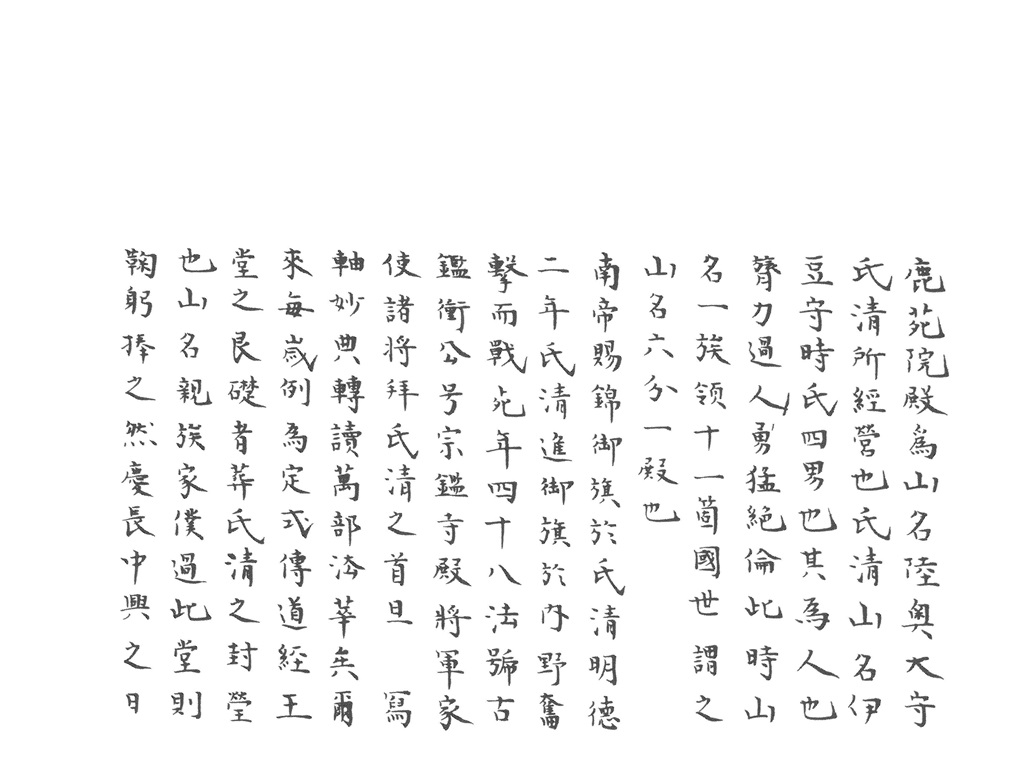 鹿苑院殿為山名陸奧大守
氏清所經營也氏清山名伊
豆守時氏四男也其為人也
膂力過人勇猛絕倫此時山
名一族領十一箇國世謂之
山名六分一殿也
南帝賜錦御旗於氏清明德
二年氏清進御旗於內野奮
擊而戰死年四十八法號古
鑑衡公号宗鑑寺殿將軍家
使諸將拜氏清之首旦 寫
軸妙典轉讀萬部法華矣爾
來每歲例為定式傳道經王
堂之艮礎者葬氏清之封塋
也山名親族家僕過此堂則
鞠躬捧之然慶長中興之日